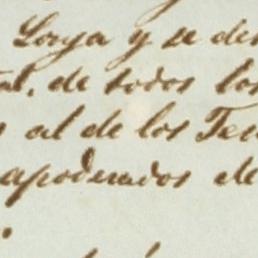 Loya y se de
al. de todos los
al de los Te
apoderados de